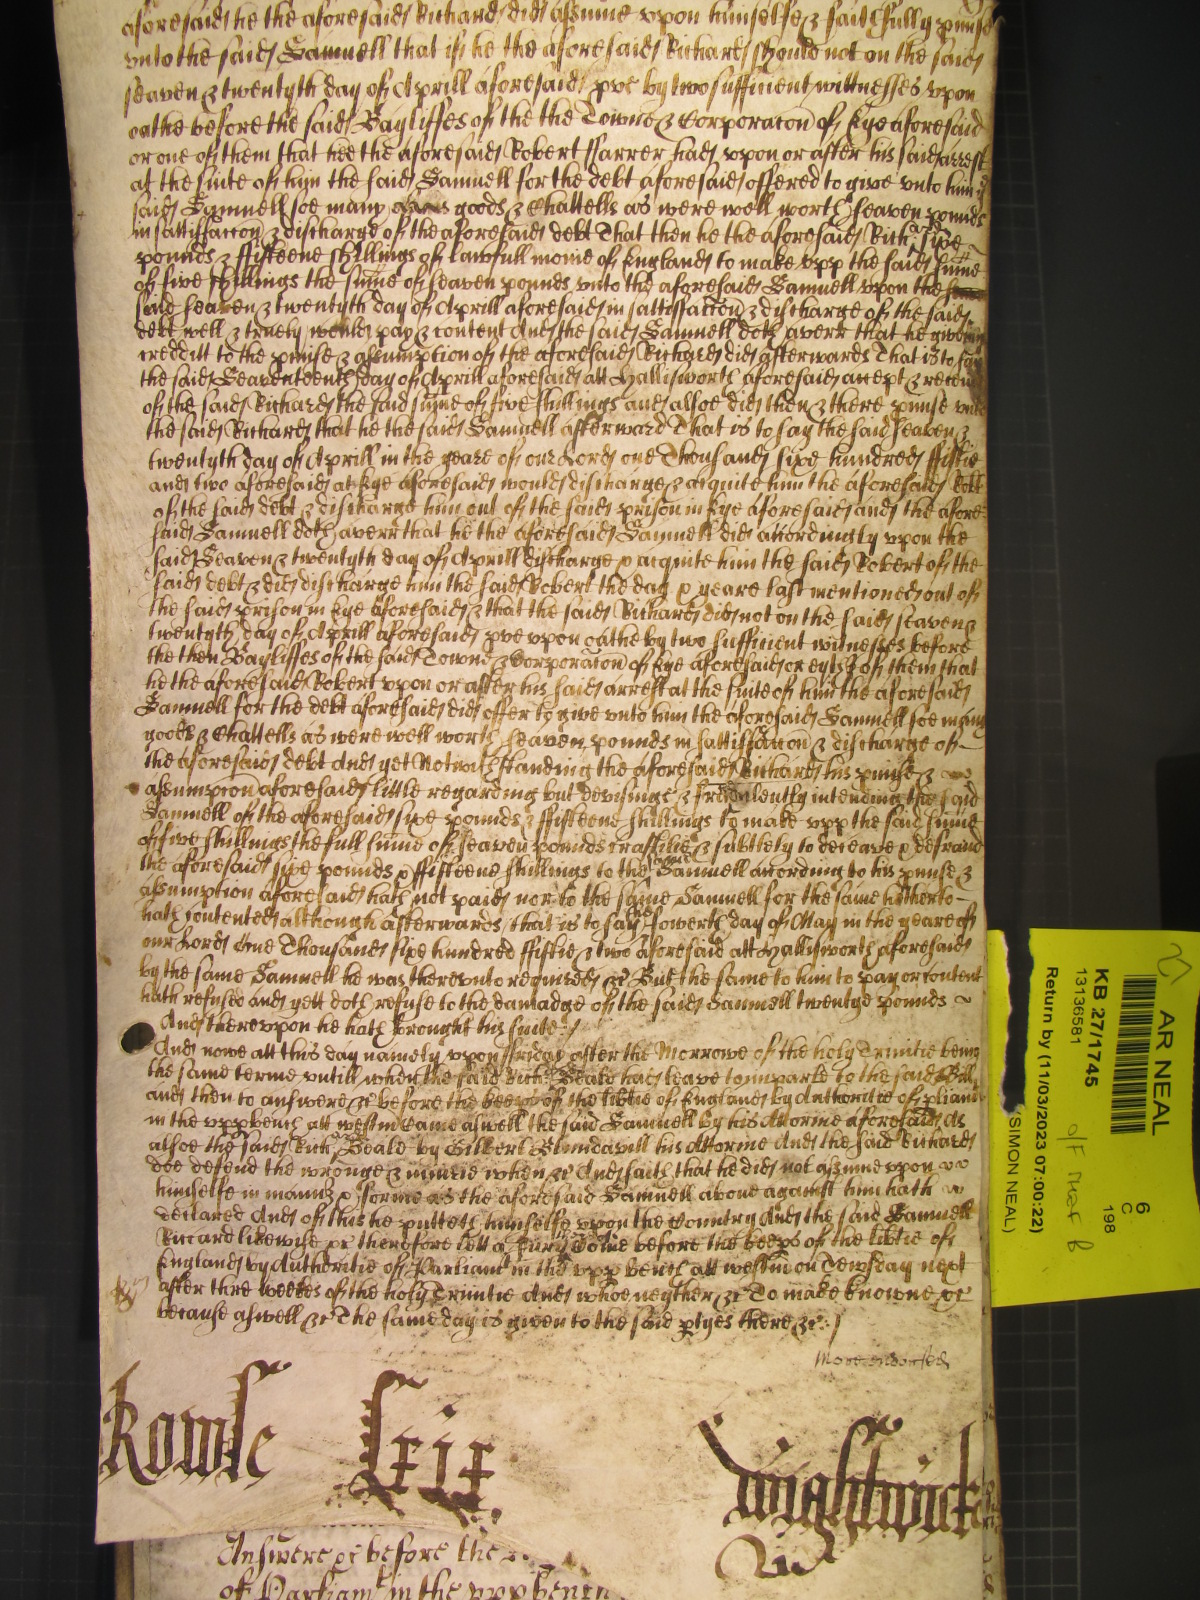 aforesaid he the aforesaid Richard did assume vpon himselfe & faithfully pmise
vnto the said Samuell that if he the aforesaid Richard should not on the said
seaven & twentyth day of Aprill aforesaid pve by two sufficient wittnesses vpon
oathe before the said Bayliffes of the the Towne & Corporacon of Eye aforesaid
or one of them that hee the aforesaid Robert ffarrer had vpon or after his said arrest
at the suite of him the said Samuell for the debt aforesaid offered to give vnto him
said Samuell soe many goods & Chattells as were well worth seaven pounds
in sattisfaccon & discharge of the aforesaid debt That then he the aforesaid Rich: sixe
pounds & ffifteene shillings of lawfull monie of England to make vpp the said sume
of five shillings the sume of seaven pounds vnto the aforesaid Samuell vpon the
said seaven & twentyth day of Aprill aforesaid in sattisfaccon & discharge of the said
debt well & truely would pay & content And the said Samuell doth averr that he giveing
creditt to the pmise & assumption of the aforesaid Richard did afterwards That is to say
the said Seaventeenth day of Aprill aforesaid att Hallisworth aforesaid accept & receive
of the said Richard the said sume of five shillings and alsoe did then & there pmise vnto
the said Richard that he the said Samuell afterward That is to say the said seaven &
twentyth day of Aprill in the yeare of our Lord one Thousand sixe hundred ffiftie
and two aforesaid at Eye aforesaid would discharge & acquite him the aforesaid Robt
of the said debt & discharge him out of the said prison in Eye aforesaid and the afore
said Samuell doth averr that he the aforesaid Samuell did accordingly vpon the
said Seaven & twentyth day of Aprill discharge & acquite him the said Robert of the
said debt & did discharge him the said Robert the day & yeare last mentioned out of
the said prison in Eye aforesaid & that the said Richard did not on the said seaven &
twentyth day of Aprill aforesaid pve vpon oathe by two sufficient witnesses before
the then Bayliffes of the said Towne & Corporacon of Eye aforesaid or eyther of them that
he the aforesaid Robert vpon or after his said arrest at the suite of him the aforesaid
Samuell for the debt aforesaid did offer to give vnto him the aforesaid Samuell soe many
goods & Chattells as were well worth seaven pounds in sattisfaccon & discharge of
the aforesaid debt And yet Notwithstanding the aforesaid Richard his pmise &
assumpcon aforesaid little regarding but devisinge & fraudulently intending the said
Samuell of the aforesaid sixe pounds & ffifteene shillings to make vpp the said sume
of five shillings the full sume of seaven pounds craftilie & subtlely to deceave & defraud
the aforesaid sixe pounds & ffifteene shillings to the same Samuell according to his pmise &
assumption aforesaid hath not paid nor to the same Samuell for the same hitherto
hath contented although afterwards that is to say the fowerth day of May in the yeare of
our Lord One Thousand sixe hundred ffiftie & two aforesaid att Hallisworth aforesaid
by the same Samuell he was therevnto required &c But the same to him to pay or content
hath refused and yett doth refuse to the damadge of the said Samuell twenty pounds
And therevpon he hath brought his suite
And nowe att this day namely vpon ffriday after the Morrowe of the holy Trinitie being
the same terme vntill when the said Rich: Beald had leave to imparle to the said Bill
and then to answere &c before the keeps of the libtie of England by Authoritie of pliamt
in the vpp bench att westm Came aswell the said Samuell by his Attorne aforesaid As
alsoe the said Rich: Beald by Gilbert Blundavill his Attorne And the said Richard
doe defend the wronge & iniurie when &c And saith that he did not assume vpon
himselfe in manner & forme as the aforesaid Samuell above against him hath
declared And of this he putteth himselfe vpon the Country And the said Samuell
Ricard likewise &c therefore lett a Jury Come before the keeps of the libtie of
England by Authoritie of Parliamt in the vpp bench att westm on Tewsday next
after thre weekes of the holy Trinitie And whoe neyther &c To make knowne &c
because aswell &c The same day is given to the said ptyes there &c
More endorsed
Rowse
Wightwick
Answere &c before the
of Parliamt in the vpp bench
AR NEAL
KB 27/1745
13136581
6
C
198
Return by (11/03/2023 07:00:22)
(SIMON NEAL)